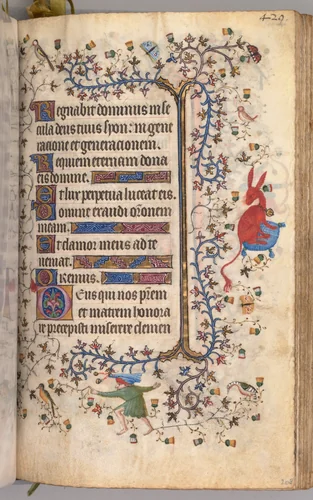 429
Regnabit dominus in se
cula deus tuus syon: in gene
racione et generacionem.
Requiem eternam dona
eis domine.
Et lux perpetua luceat eis.
Domine exaudi oracionem
meam.
Et clamor meus ad te
veniat.
Oremus.
Deus qui nos patrem
et matrem honora
re precepisti miserere clemen